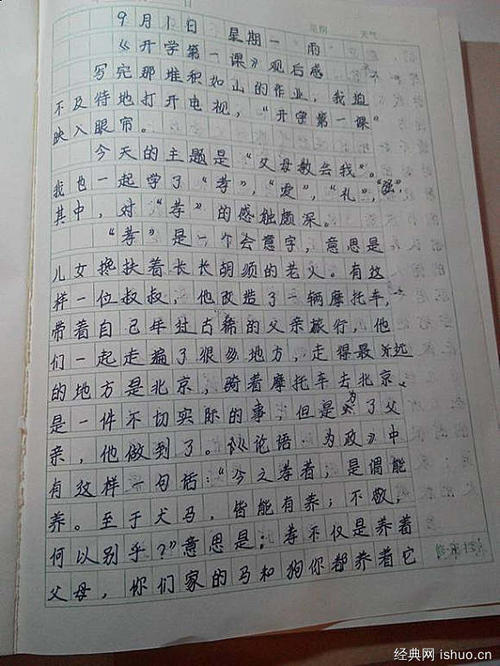 日
星期 天气
9月1日 星期一 雨
《开学第一课》观后感
写完那堆积如山的作业，我迫
不及待地打开电视，“开学第一课”
映入眼帘。
今天的主题是“父母教会我”。
我也一起学了“孝”，“爱”，“礼”，“强”，
其中，对“孝”的感触颇深。
“孝”是一个会意字，意思是
儿女搀扶着长长胡须的老人。有这
样一位叔叔，他改造了一辆摩托车，
带着自己年过古稀的父亲旅行，他
们一起走遍了很多地方，走得最远
的地方是北京，骑着摩托车去北京、
是一件不切实际的事，但是为了父
亲，他做到了。《论语·为政》中
有这样一句话：“今之孝者；是谓能
养。至于犬马，皆能有养；不敬，
何以别乎？”意思是：孝不仅是养着
父母，你们家的马和狗你都养着它
经典网 ishuo.cn